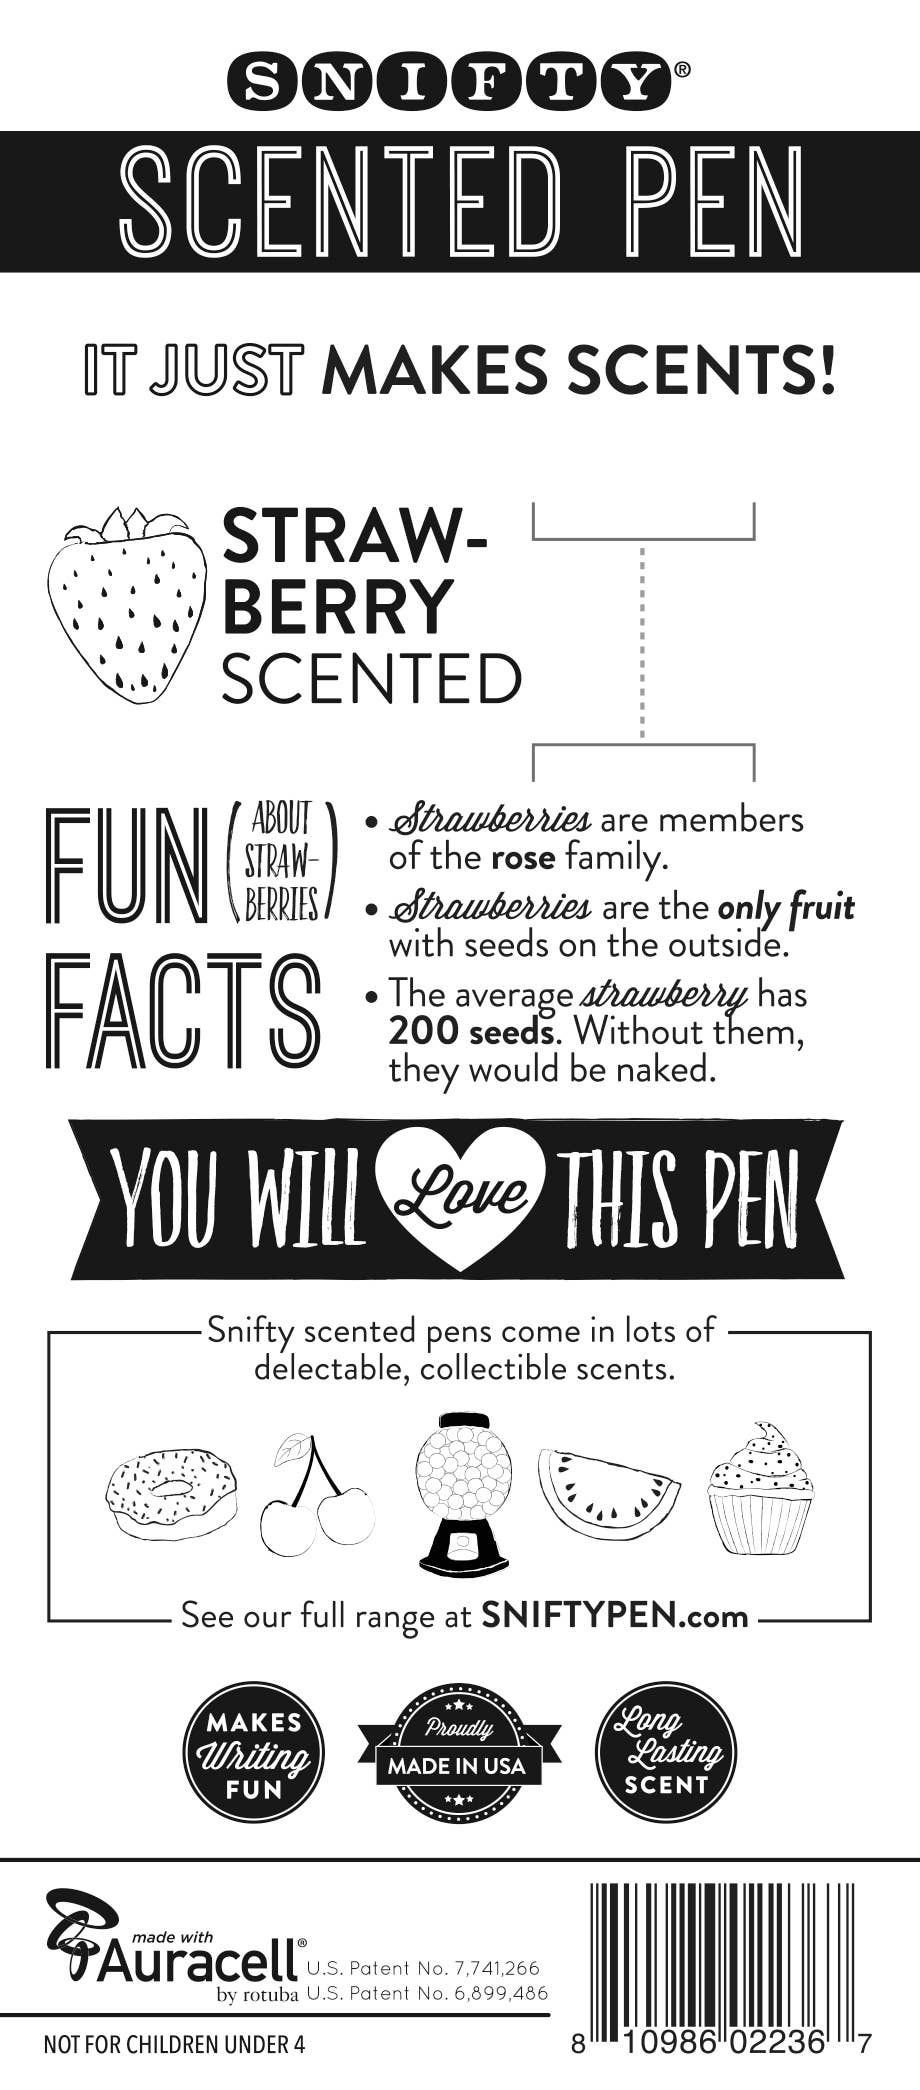 SNIFTY®
SCENTED PEN
IT JUST MAKES SCENTS!
STRAW-
BERRY
SCENTED
FUN
(ABOUT
STRAW-
BERRIES)
FACTS
• Strawberries are members
of the rose family.
• Strawberries are the only fruit
with seeds on the outside.
• The average strawberry has
200 seeds. Without them,
they would be naked.
YOU WILL Love THIS PEN
Snifty scented pens come in lots of
delectable, collectible scents.
See our full range at SNIFTYPEN.com
MAKES
Writing
FUN
Proudly
MADE IN USA
Long
Lasting
SCENT
made with
Auracell®
by rotuba
U.S. Patent No. 7,741,266
U.S. Patent No. 6,899,486
NOT FOR CHILDREN UNDER 4
8 10986 02236 7